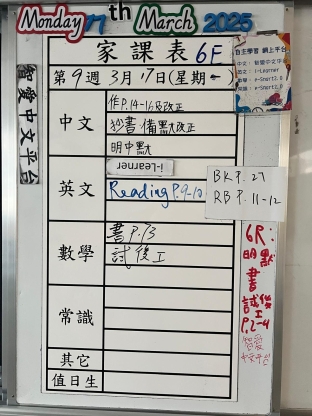 Monday 17th March 2025
家課表 6F
第9週 3月17日(星期一)
智愛中文平台
自主學習 網上平台
中文：智愛中文平台
英文：i-Learner
數學：e-Smart2.0
常識：e-Smart2.0
中文
作P.14-16及改正
抄書 備默改正
明中默
英文
i-Learner
Reading P.9-10
BK P. 27
RB P. 11-12
數學
書P.73
試後工
常識
其它
值日生
6R:
明默
書
試後工
P.2-4
智愛
中文平台